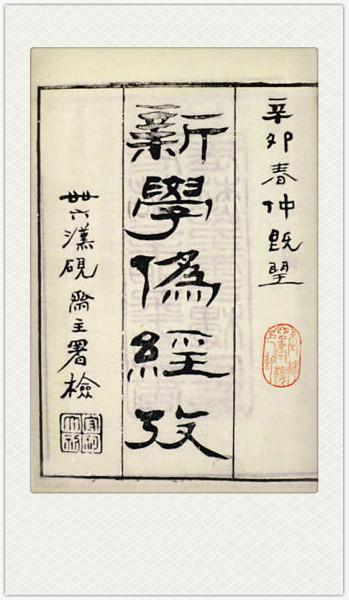 辛卯春仲既望
新學僞經攷
卅六漢硯齋主署檢